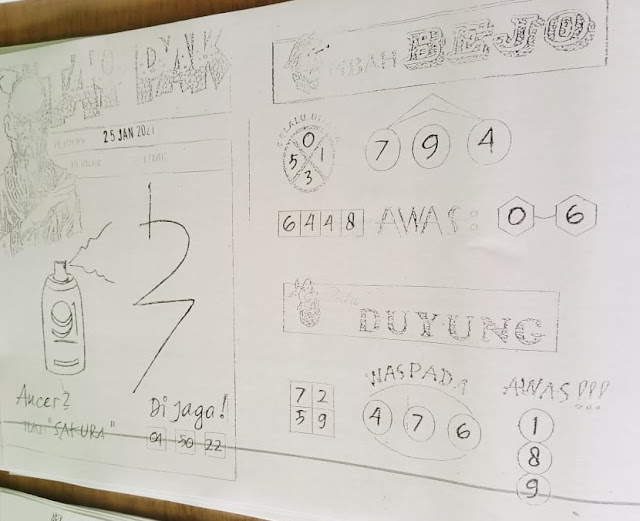 25 JAN 2021
91
Ancer2
"SAKURA"
Di jaga!
04 50 22
MBAH BEJO
0
5 1
3
7 9 4
6 4 4 8 AWAS: 0-6
DUYUNG
7 2
5 9
WASPADA
4 7 6
AWAS!!!
1
8
9